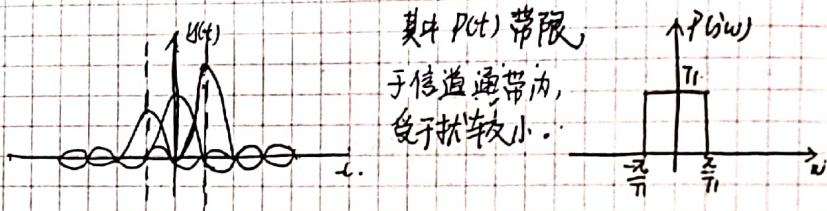 y(t)
t.
其中 P(t) 带限
于信道通带内,
受干扰较小.
P(jω)
T₁
-π/T₁
π/T₁
ω